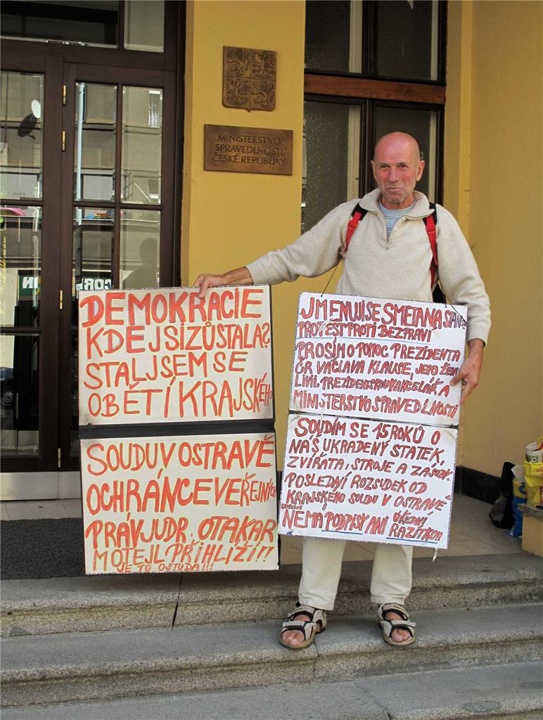 MINISTERSTVO
SPRAVEDLNOSTI
ČESKÉ REPUBLIKY
DEMOKRACIE
KDE JSI ZŮSTALA?
STAL JSEM SE
OBĚTÍ KRAJSKÉHO
SOUDU V OSTRAVĚ
OCHRÁNCE VEŘEJNÝCH
PRÁV JUDR. OTAKAR
MOTEJL PŘIHLÍŽÍ!!
JE TO OSTUDA!!!
JMENUJI SE SMETANA
PROTEST PROTI BEZPRAVÍ
PROSÍM O POMOC PREZIDENTA
ČR VÁCLAVA KLAUSE, JEHO ŽENU
LIVII, PREZIDENTSKOU KANCELÁŘ A
MINISTERSTVO SPRAVEDLNOSTI
SOUDÍM SE 15 ROKŮ O
NÁŠ UKRADENÝ STATEK,
ZVÍŘATA, STROJE A
POSLEDNÍ ROZSUDEK OD
KRAJSKÉHO SOUDU V OSTRAVĚ
NEMÁ PODPISY ANI ÚŘEDNÍ
RAZÍTKO!!